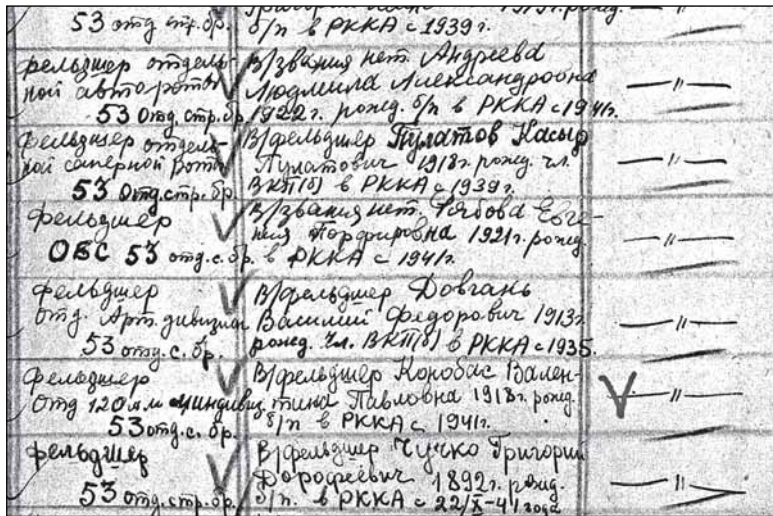 53 отд. стр. бр.
б/п в РККА с 1939 г.
фельдшер отдель-
ной авторотты
53 отд. стр. бр.
В/звания нет Андреева
Людмила Александровна
1922 г. рожд. б/п в РККА с 1941 г.
— " —
фельдшер отдель-
ной саперной роты
53 отд. стр. бр.
В/фельдшер Пулатов Касыр
Пулатович 1918 г. рожд. чл.
ВКП(б) в РККА с 1939 г.
— " —
фельдшер
ОБС 53 отд. с. бр.
В/звания нет Рябова Евге-
ния Порфировна 1921 г. рожд.
в РККА с 1941 г.
— " —
фельдшер
отд. Арт. дивизион
53 отд. с. бр.
В/фельдшер Довгань
Василий Федорович 1913 г.
рожд. чл. ВКП(б) в РККА с 1935.
— " —
фельдшер
отд 120 м.м миндивиз
53 отд. с. бр.
В/фельдшер Коробас Вален-
тина Павловна 1918 г. рожд.
б/п в РККА с 1941 г.
— " —
фельдшер
53 отд. стр. бр.
В/фельдшер Чучко Григорий
Дорофеевич 1892 г. рожд.
б/п. в РККА с 22/X-41 года
— " —